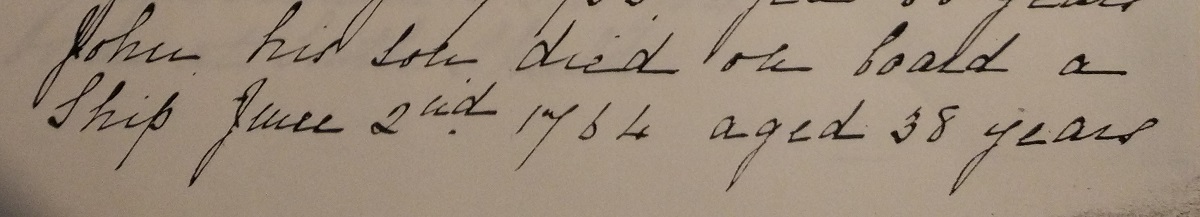 years
John his son died on board a
Ship June 2nd. 1764 aged 38 years